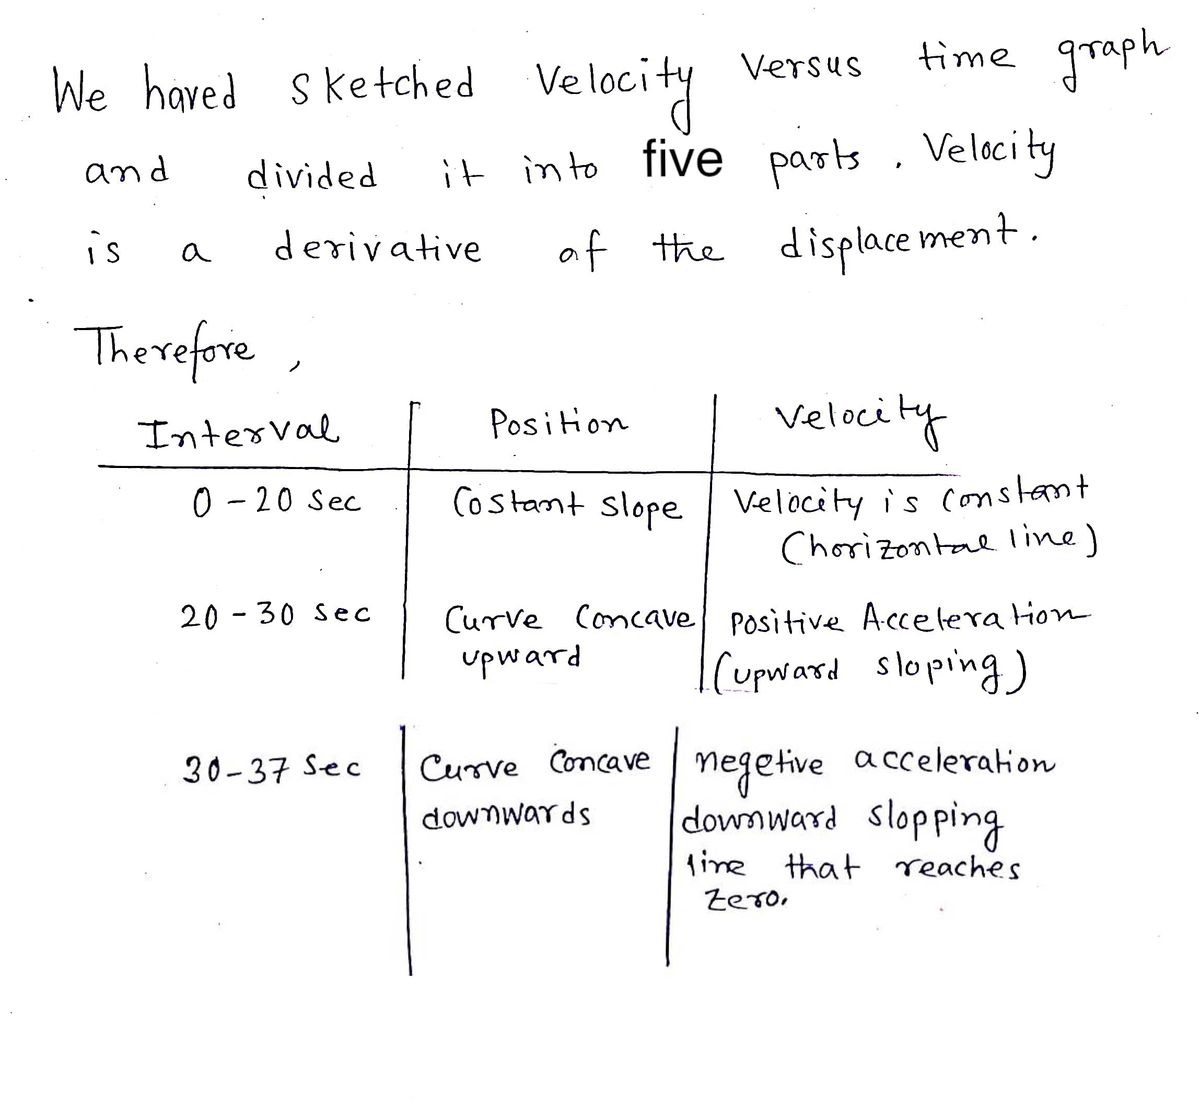 We haved sketched Velocity Versus time graph
and divided it into five parts. Velocity
is a derivative of the displacement.
Therefore,
Interval Position Velocity
0 - 20 Sec Costant slope Velocity is constant
(horizontal line)
20 - 30 sec Curve Concave positive Acceleration
upward (upward sloping)
30-37 Sec Curve Concave negetive acceleration
downwards downward slopping
line that reaches
zero.